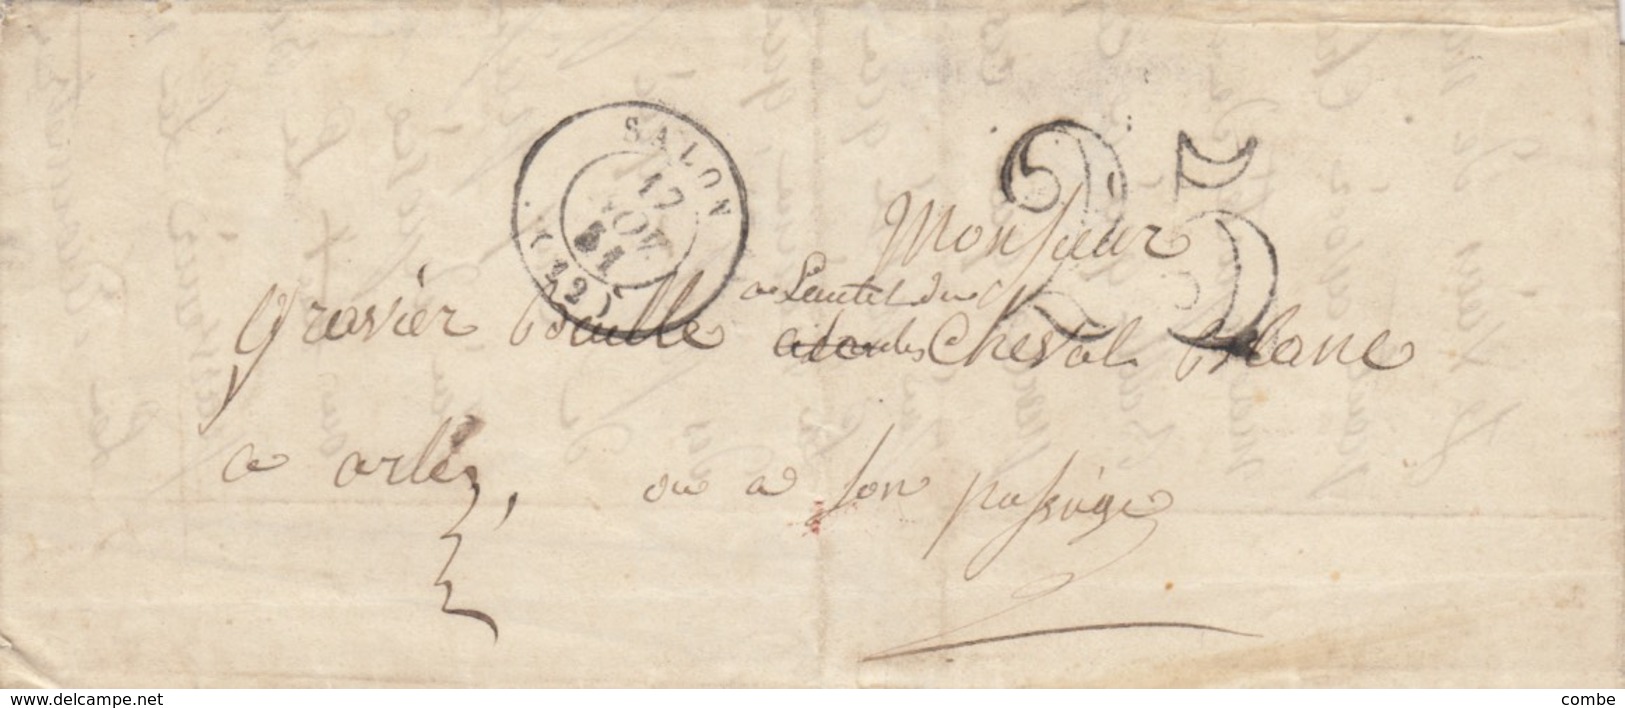 SALON
17
NOV
51
(12)
25
Monsieur
a Lautel du
Gravier Boeulle Cheval Blanc
a arles, ou a son passage
www.delcampe.net
combe